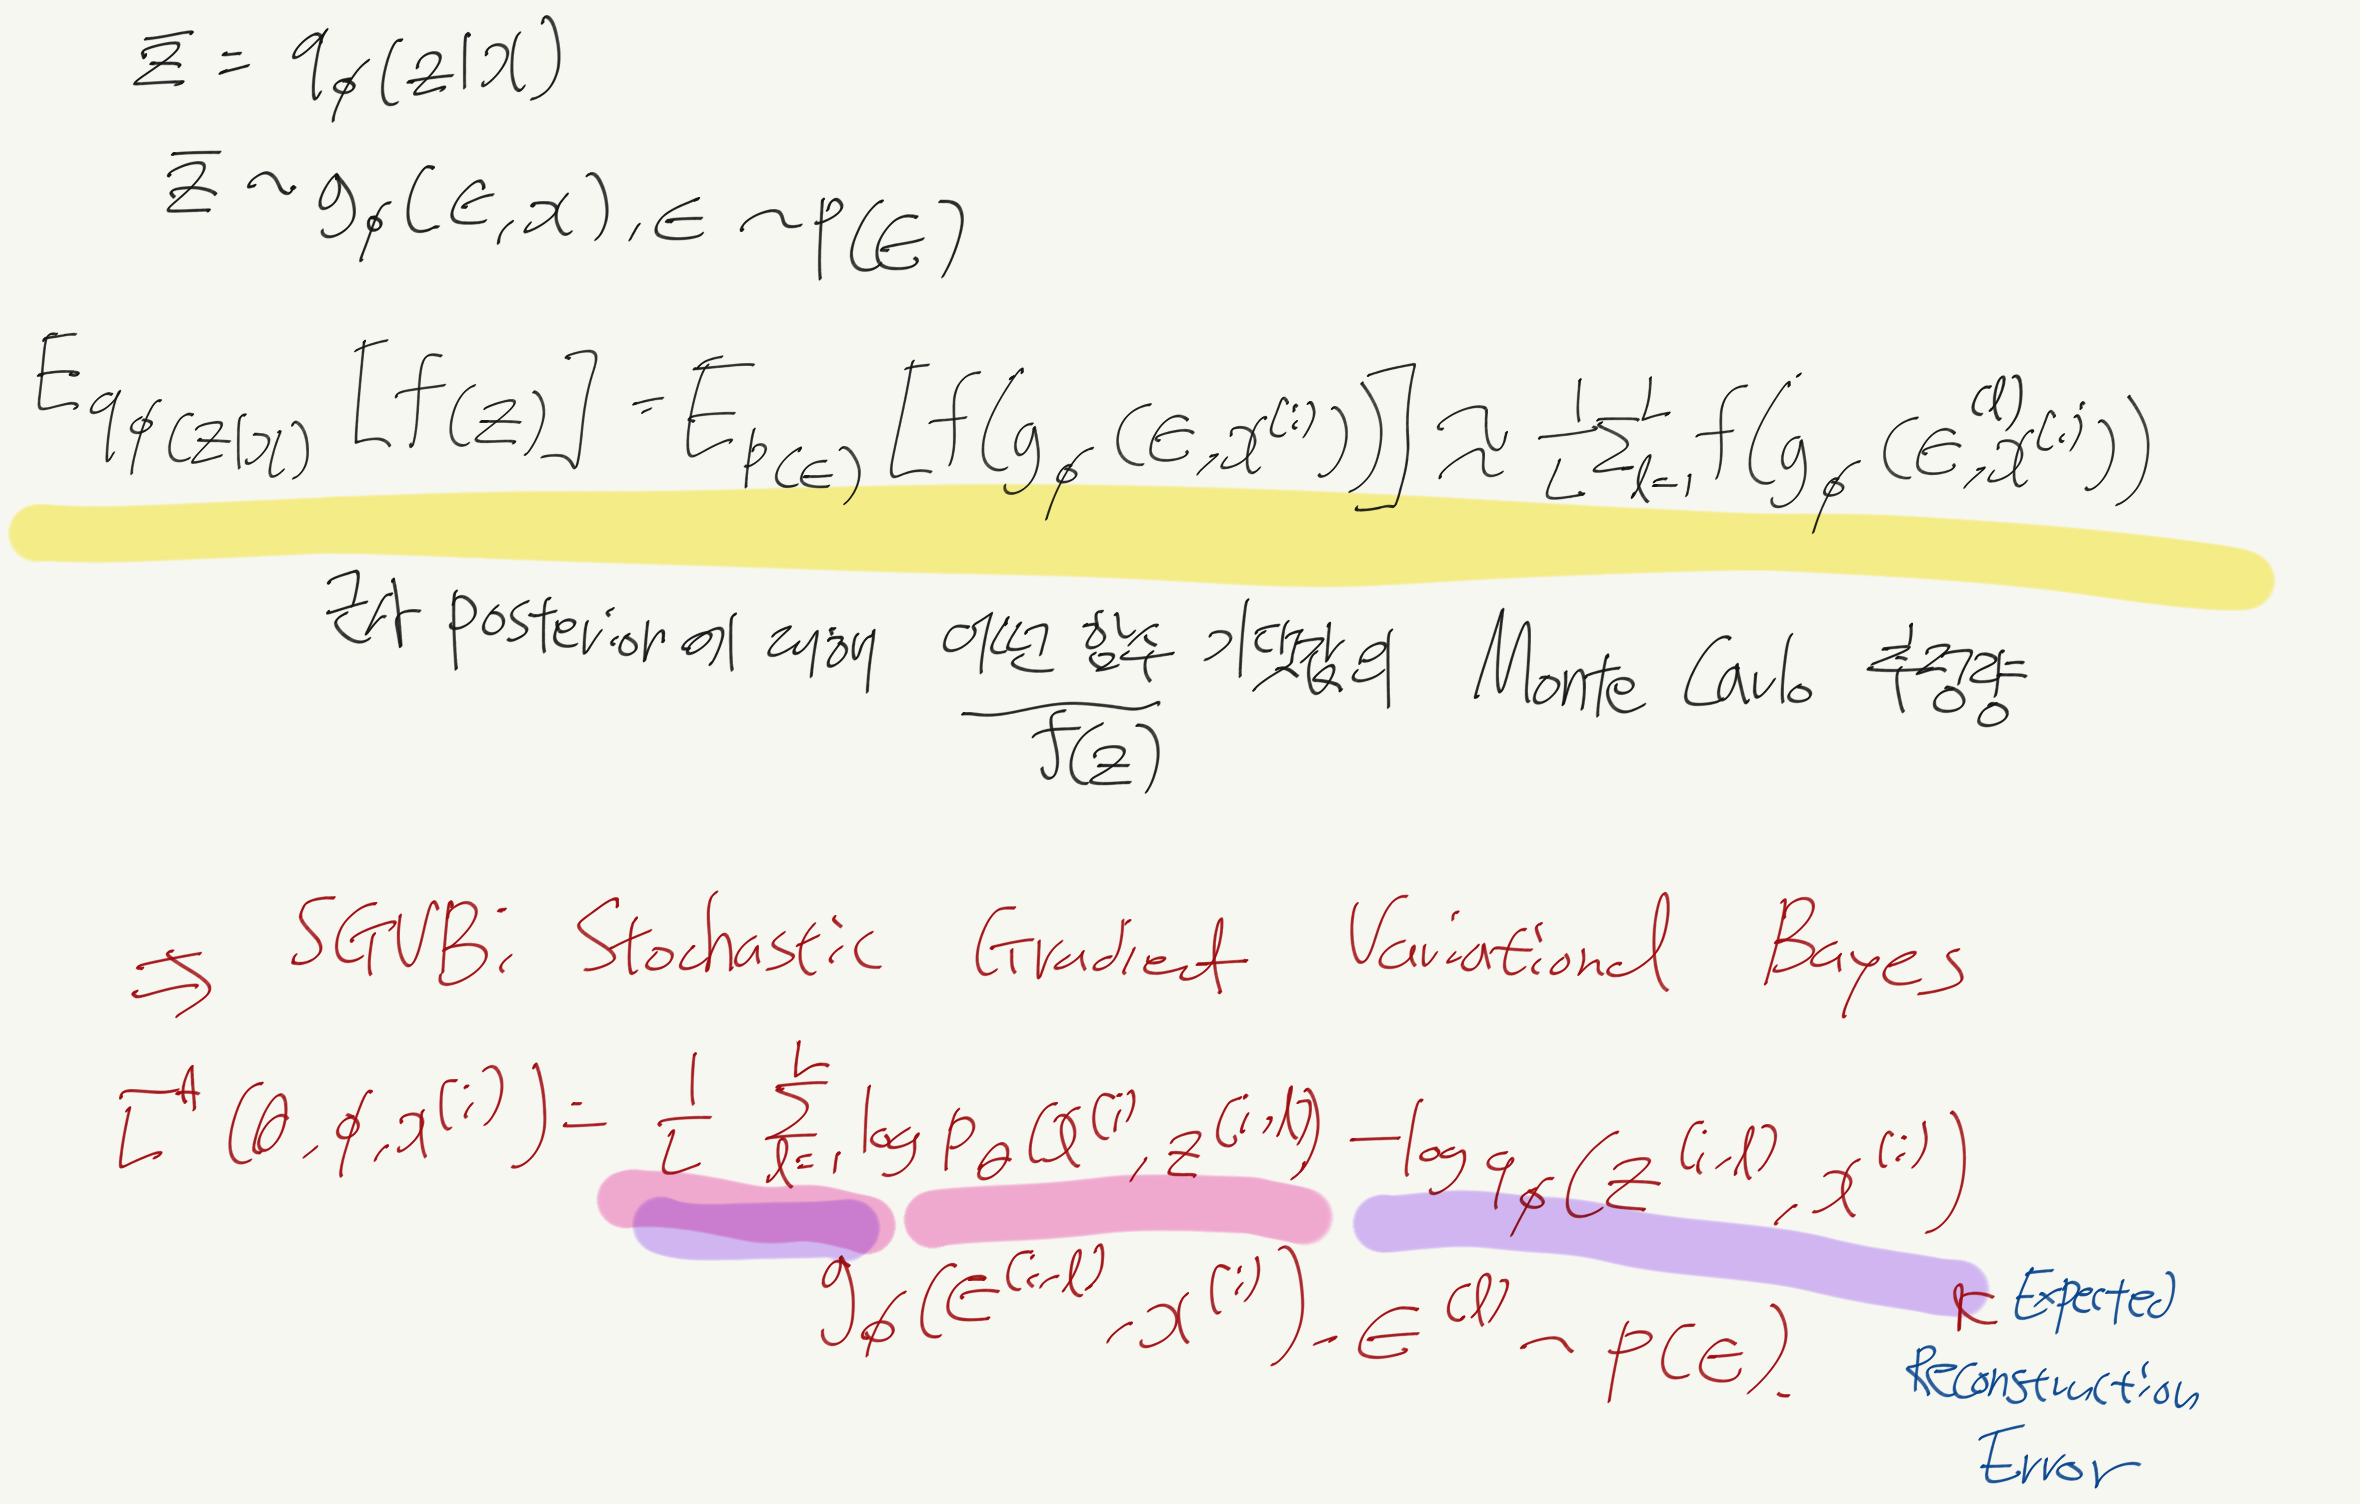 z̅ = qϕ(z|x)
z̅ ~ gϕ(ϵ, x), ϵ ~ p(ϵ)
E_qϕ(z|x) [f(z)] = E_p(ϵ) [f(gϕ(ϵ, x^(i)))] ≈ 1/L Σ_l=1^L f(gϕ(ϵ^(l), x^(i)))
근사 posterior에 어떤 함수 기댓값의 Monte Carlo 추정
f(z)
⇒ SGVB: Stochastic Gradient Variational Bayes
L^A (θ, ϕ, x^(i)) = 1/L Σ_l=1^L log pθ(x^(i), z^(i,l)) − log qϕ(z^(i,l), x^(i))
gϕ(ϵ^(i,l), x^(i)), ϵ^(l) ~ p(ϵ).
Expected
Reconstruction
Error